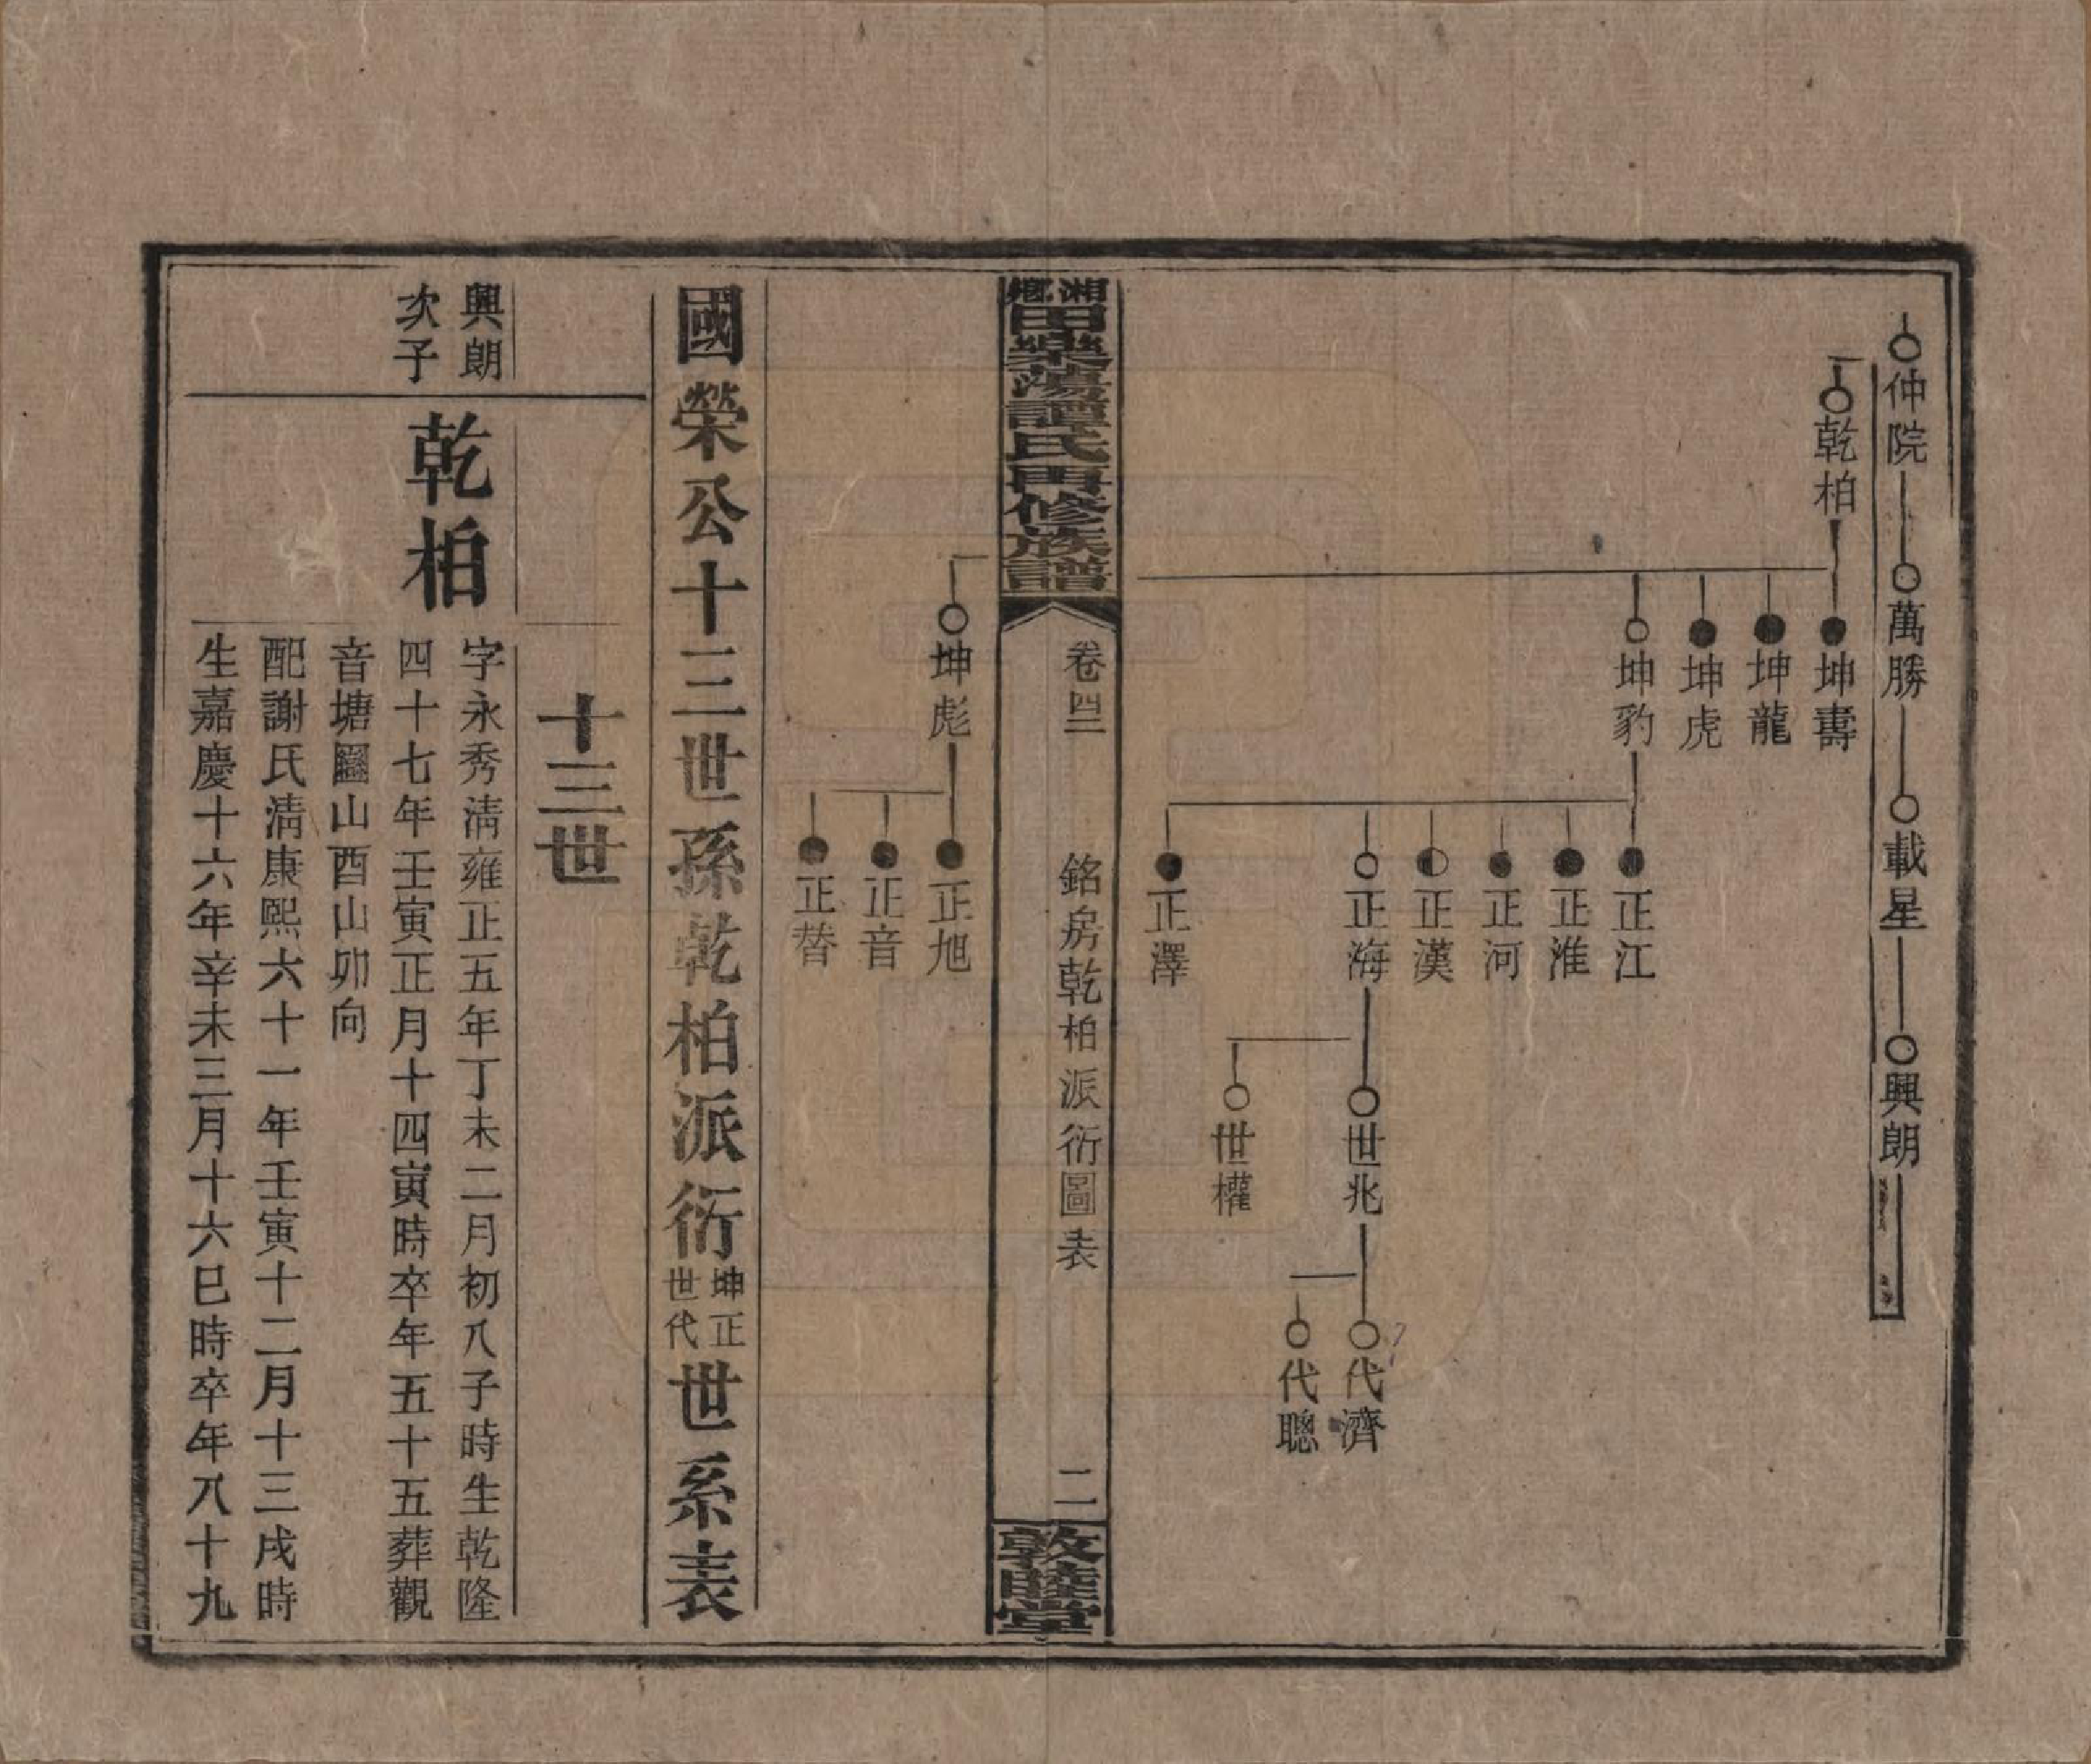 仲院 萬勝 載星 興朗
乾柏
坤壽
坤龍
坤虎
坤豹
正江
正淮
正河
正漢
正海
正澤
世兆
世權
代濟
代聰
湘鄉田樂蕩譚氏再修族譜
卷四二
銘房乾柏派衍圖表
二
敦睦堂
坤彪
正旭
正音
正替
國榮公十三世孫乾柏派衍坤正世代世系表
十三世
興朗
次子
乾柏
字永秀清雍正五年丁未二月初八子時生乾隆
四十七年壬寅正月十四寅時卒年五十五葬觀
音塘圝山酉山卯向
配謝氏清康熙六十一年壬寅十二月十三戌時
生嘉慶十六年辛未三月十六巳時卒年八十九